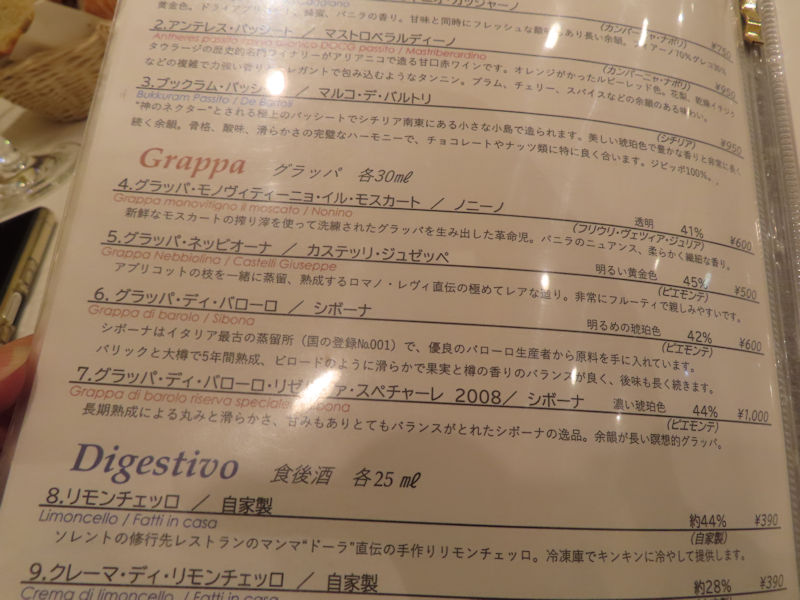 黄金色。ドライアプリコット、蜂蜜、バニラの香り。甘味と同時にフレッシュな酸味もあり長い余韻。
(カンパーニャ・ナポリ) ¥750
2.アンテレス・パッシート / マストロベラルディーノ
Antheres passito / Mastriberardino
タウラージの歴史的名門ワイナリーがアリアニコで造る甘口赤ワインです。オレンジがかったルビーレッド色。花梨、乾燥イチジク
(カンパーニャ・ナポリ) ¥950
などの複雑で力強い香りとエレガントで包み込むようなタンニン。プラム、チェリー、スパイスなどの余韻のある味わい。
3.ブックラム・パッシート / マルコ・デ・バルトリ
Bukkuram Passito / De Bartoli
(シチリア) ¥950
"神のネクター"とされる極上のパッシートでシチリア南東にある小さな小島で造られます。美しい琥珀色で豊かな香りと非常に長く
続く余韻。骨格、酸味、滑らかさの完璧なハーモニーで、チョコレートやナッツ類に特に良く合います。ジビッボ100%。
Grappa グラッパ 各30㎖
4.グラッパ・モノヴィティーニョ・イル・モスカート / ノニーノ 透明 41% ¥600
Grappa monovitigno il moscato / Nonino (フリウリ・ヴェツィア・ジュリア)
新鮮なモスカートの搾り滓を使って洗練されたグラッパを生み出した革命児。バニラのニュアンス、柔らかく繊細な香り。
5.グラッパ・ネッビオーナ / カステッリ・ジュゼッペ 明るい黄金色 45% ¥500
Grappa Nebbiolina / Castelli Giuseppe (ピエモンテ)
アプリコットの枝を一緒に蒸留、熟成するロマノ・レヴィ直伝の極めてレアな造り。非常にフルーティで親しみやすいです。
6.グラッパ・ディ・バローロ / シボーナ 明るめの琥珀色 42% ¥600
Grappa di barolo / Sibona (ピエモンテ)
シボーナはイタリア最古の蒸留所（国の登録№001）で、優良のバローロ生産者から原料を手に入れています。
バリックと大樽で5年間熟成、ビロードのように滑らかで果実と樽の香りのバランスが良く、後味も長く続きます。
7.グラッパ・ディ・バローロ・リゼルヴァ・スペチャーレ 2008/ シボーナ 濃い琥珀色 44% ¥1,000
Grappa di barolo riserva speciale / Sibona (ピエモンテ)
長期熟成による丸みと滑らかさ、甘みもありとてもバランスがとれたシボーナの逸品。余韻が長い瞑想的グラッパ。
Digestivo 食後酒 各25㎖
8.リモンチェッロ / 自家製 約44% ¥390
Limoncello / Fatti in casa (自家製)
ソレントの修行先レストランのマンマ"ドーラ"直伝の手作りリモンチェッロ。冷凍庫でキンキンに冷やして提供します。
9.クレーマ・ディ・リモンチェッロ / 自家製 約28% ¥390
Crema di limoncello / Fatti in casa